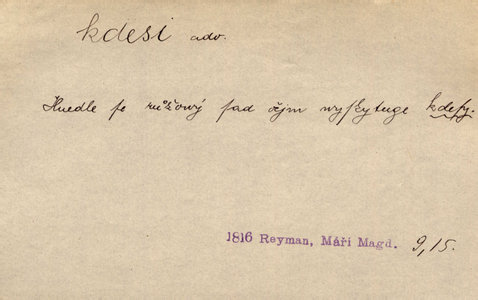 kdesi adv.
Hnedle ſe růžowý ſad ôčjm wyſkytuge kdeſy.
1816 Reyman, Máří Magd. 9, 15.